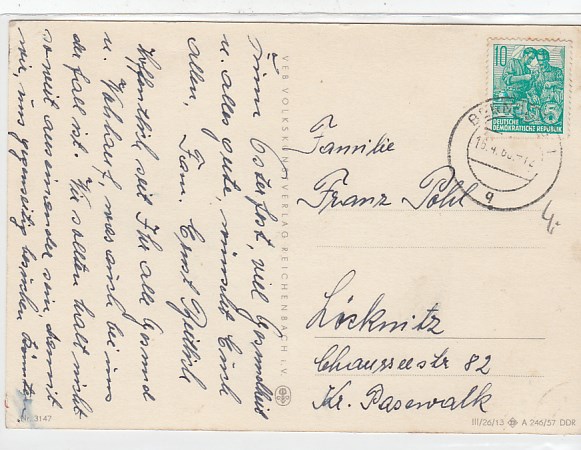 Zum Osterfest, viel Gesundheit
u. alles gute, wünscht Euch
Allen,
Fam. Ernst
Hoffentlich seit Ihr alle Gesund
u. Wohlauf, was auch bei uns
der Fall ist. Wir sollten halt nicht
so weit auseinander sein, damit
wir, uns gegenseitig besuchen könnten.
VEB VOLKSKUNSTVERLAG REICHENBACH I. V.
Nr. 3147
10
5
DEUTSCHE
DEMOKRATISCHE REPUBLIK
q
Familie
Franz Pohl
Löcknitz
Chausseestr 82
Kr. Pasewalk
III/26/13 A 246/57 DDR